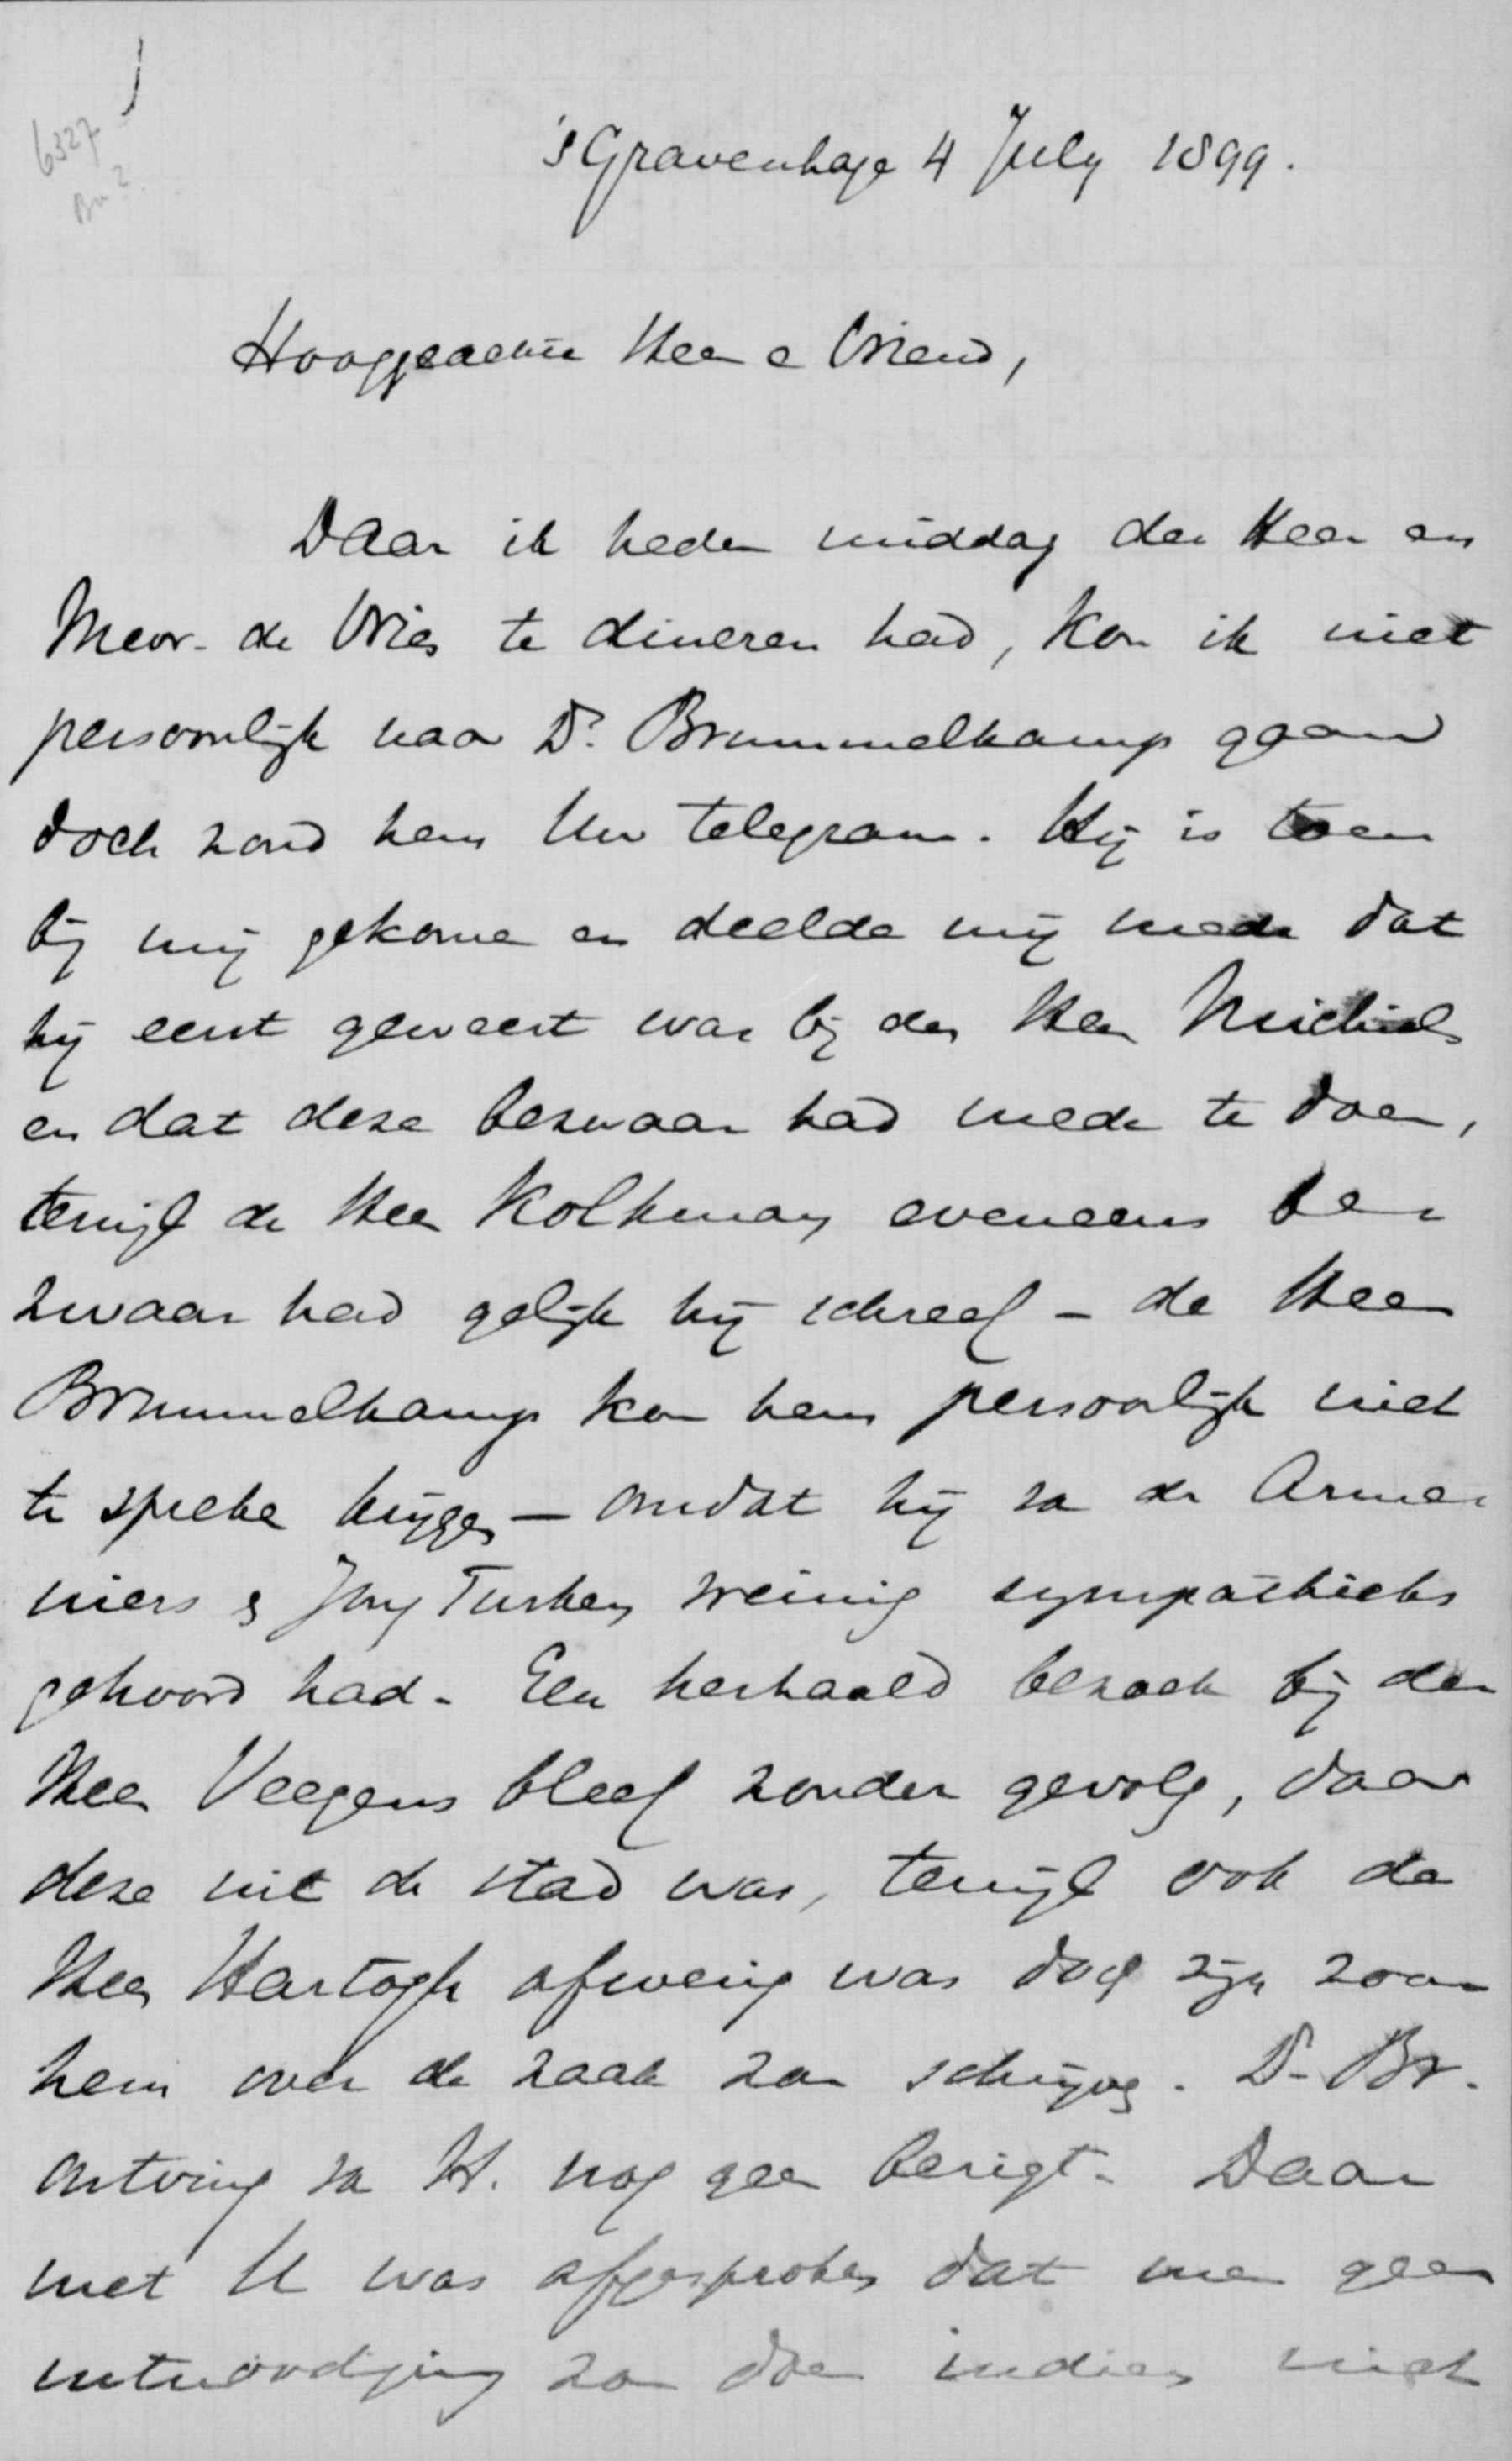 6327
Bu?
'sGravenhage 4 July 1899.
Hooggeachte Heer e Vriend,
Daar ik heden middag den Heer en
Mevr. de Vries te dineren had, kon ik niet
persoonlijk naar Dr. Brummelkamp gaan
doch zond hem Uw telegram. Hij is toen
bij mij gekomen en deelde mij mede dat
hij eerst geweest was bij den Heer Michiels
en dat deze bezwaar had mede te doen,
terwijl de Heer Kolkman eveneens be-
zwaar had gelijk hij schreef - de Heer
Brummelkamp kon hem persoonlijk niet
te spreken krijgen - omdat hij va de Arme-
niers & Jong Turken weinig sympathieks
gehoord had. Een herhaald bezoek bij den
Heer Veegens bleef zonder gevolg, daar
deze uit de stad was, terwijl ook de
Heer Hartogh afwezig was doch zijn zoon
hem over de zaak zou schrijven. Dr. Br.
ontving va H. nog geen berigt. Daar
met U was afgesproken dat men geen
uitnoodiging zou doen indien niet